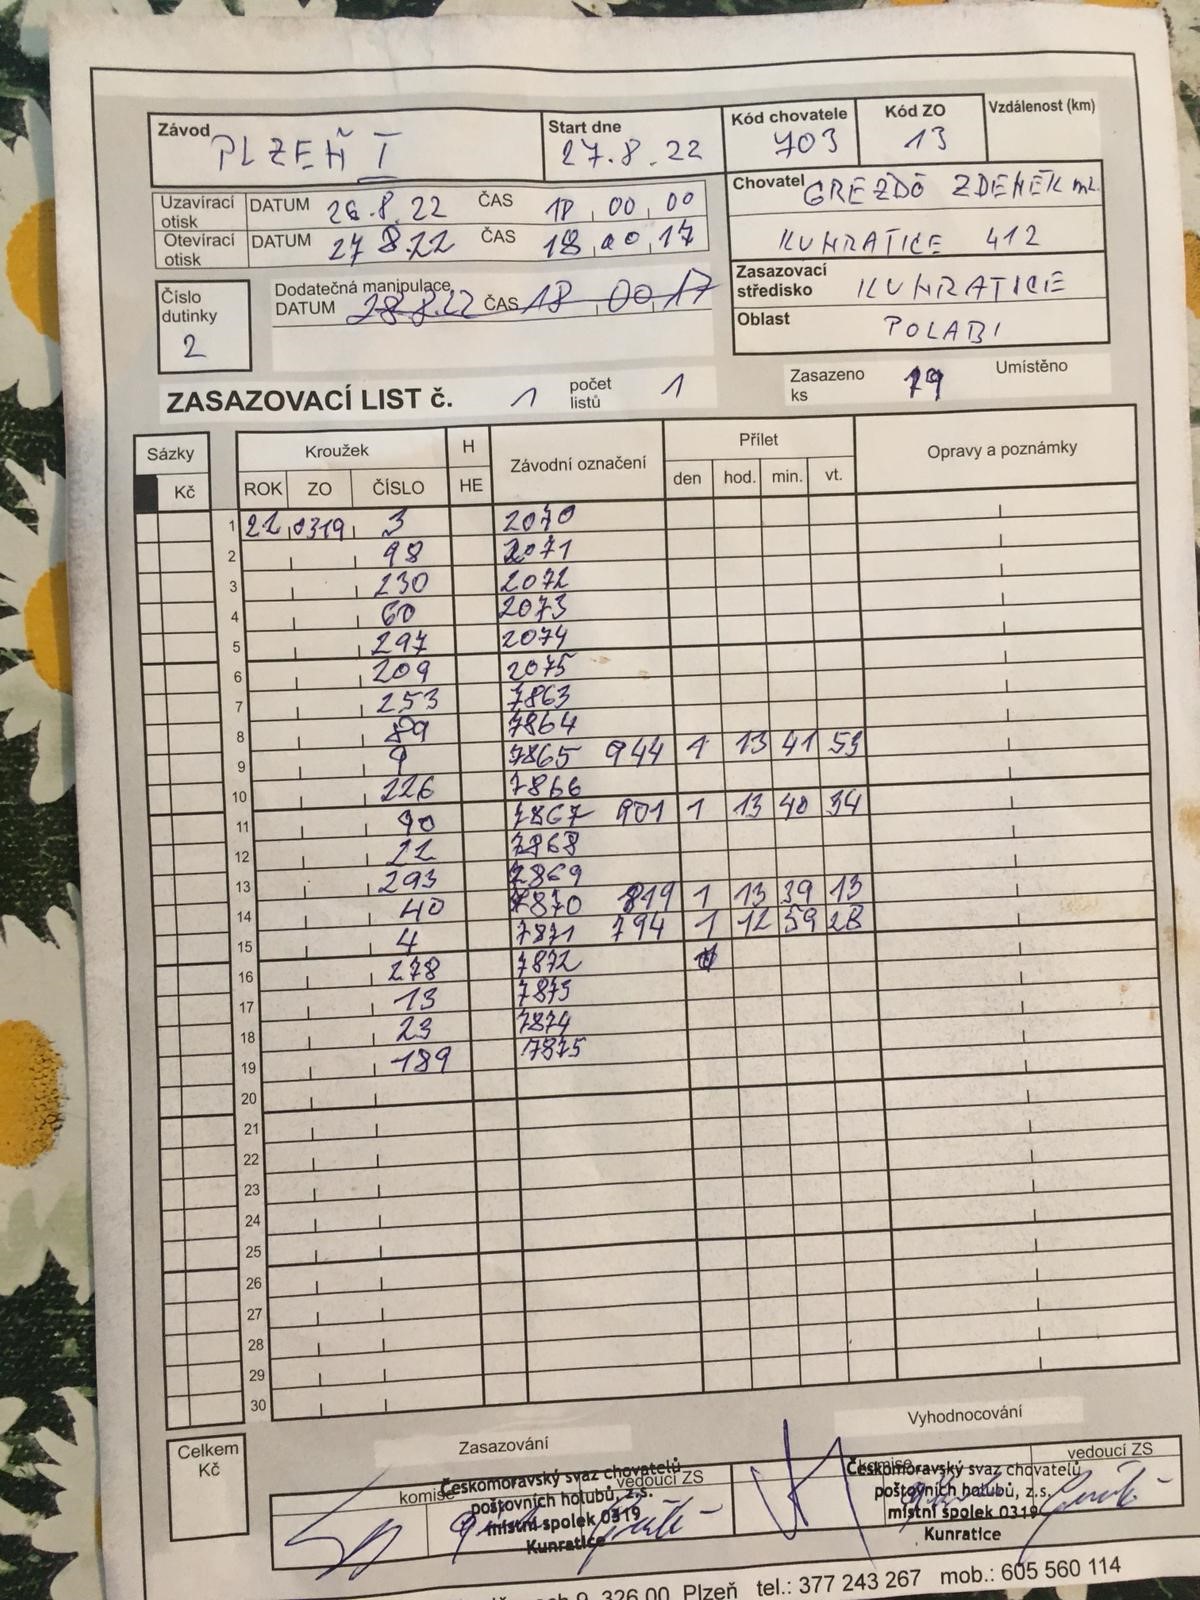 Závod PLZEŇ I Start dne 27.8.22 Kód chovatele 703 Kód ZO 13 Vzdálenost (km)
Uzavírací otisk DATUM 26.8.22 ČAS 18 00 00
Otevírací otisk DATUM 27 8.22 ČAS 18 00 17
Chovatel GREZDO ZDENĚK ml.
KUNRATICE 412
Zasazovací středisko KUNRATICE
Oblast POLABI
Číslo dutinky 2
Dodatečná manipulace
DATUM 28.8.22 ČAS 18 00 17
ZASAZOVACÍ LIST č. 1 počet listů 1 Zasazeno ks 19 Umístěno
Sázky Kroužek H Závodní označení Přílet Opravy a poznámky
Kč ROK ZO ČÍSLO HE den hod. min. vt.
1 22 0319 3 2070
2 98 2071
3 230 2072
4 60 2073
5 297 2074
6 209 2075
7 253 7863
8 89 7864
9 9 7865 944 1 13 41 53
10 226 7866
11 90 7867 901 1 13 40 34
12 22 7868
13 293 7869
14 40 7870 819 1 13 39 13
15 4 7871 794 1 12 59 28
16 278 7872
17 13 7873
18 23 7874
19 189 7875
20
21
22
23
24
25
26
27
28
29
30
Celkem Kč
Zasazování
Vyhodnocování
komise vedoucí ZS
komise vedoucí ZS
Českomoravský svaz chovatelů
poštovních holubů, z.s.
místní spolek 0319
Kunratice
Českomoravský svaz chovatelů
poštovních holubů, z.s.
místní spolek 0319
Kunratice
9, 326 00 Plzeň tel.: 377 243 267 mob.: 605 560 114